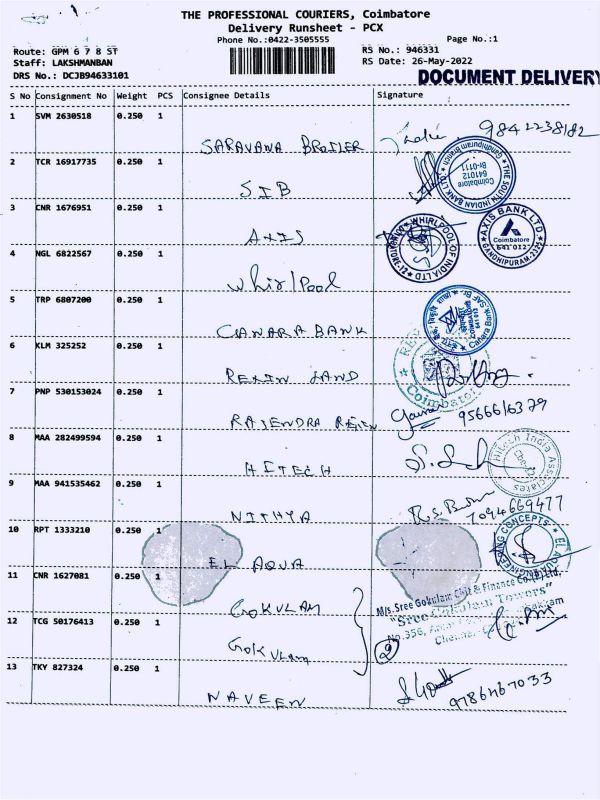 THE PROFESSIONAL COURIERS, Coimbatore
Delivery Runsheet - PCX
Phone No.:0422-3505555
Page No.:1
Route: GPM 6 7 8 ST
RS No.: 946331
Staff: LAKSHMANBAN
RS Date: 26-May-2022
DRS No.: DCJB94633101
DOCUMENT DELIVERY
S No Consignment No Weight PCS Consignee Details Signature
1 SVM 2630518 0.250 1
SARAVANA BROILER 9842238182
2 TCR 16917735 0.250 1
SIB
THE SOUTH INDIAN BANK LTD. Gandhipuram Branch Br-0111 641012 Coimbatore
3 CNR 1676951 0.250 1
AXIS
AXIS BANK LTD Coimbatore 641 012 GANDHIPURAM
WHIRLPOOL OF INDIA LTD
4 NGL 6822567 0.250 1
Whirlpool
5 TRP 6807200 0.250 1
CANARA BANK
Canara Bank
6 KLM 325252 0.250 1
REXIN LAND
Coimbatore
7 PNP 530153024 0.250 1
RAJENDRA REXIN 9566616379
8 MAA 282499594 0.250 1
HITECH
Hitech India Associates
9 MAA 941535462 0.250 1
NITHYA 7094669477
10 RPT 1333210 0.250 1
EL AQUA
CONCEPTS
11 CNR 1627081 0.250 1
GOKULAM
M/s. Sree Gokulam Chit & Finance Co.(P) Ltd.,
"Sree Gokulam Towers"
No.356,
Chennai
12 TCG 50176413 0.250 1
GOKULAM 2
13 TKY 827324 0.250 1
NAVEEN 9786467033